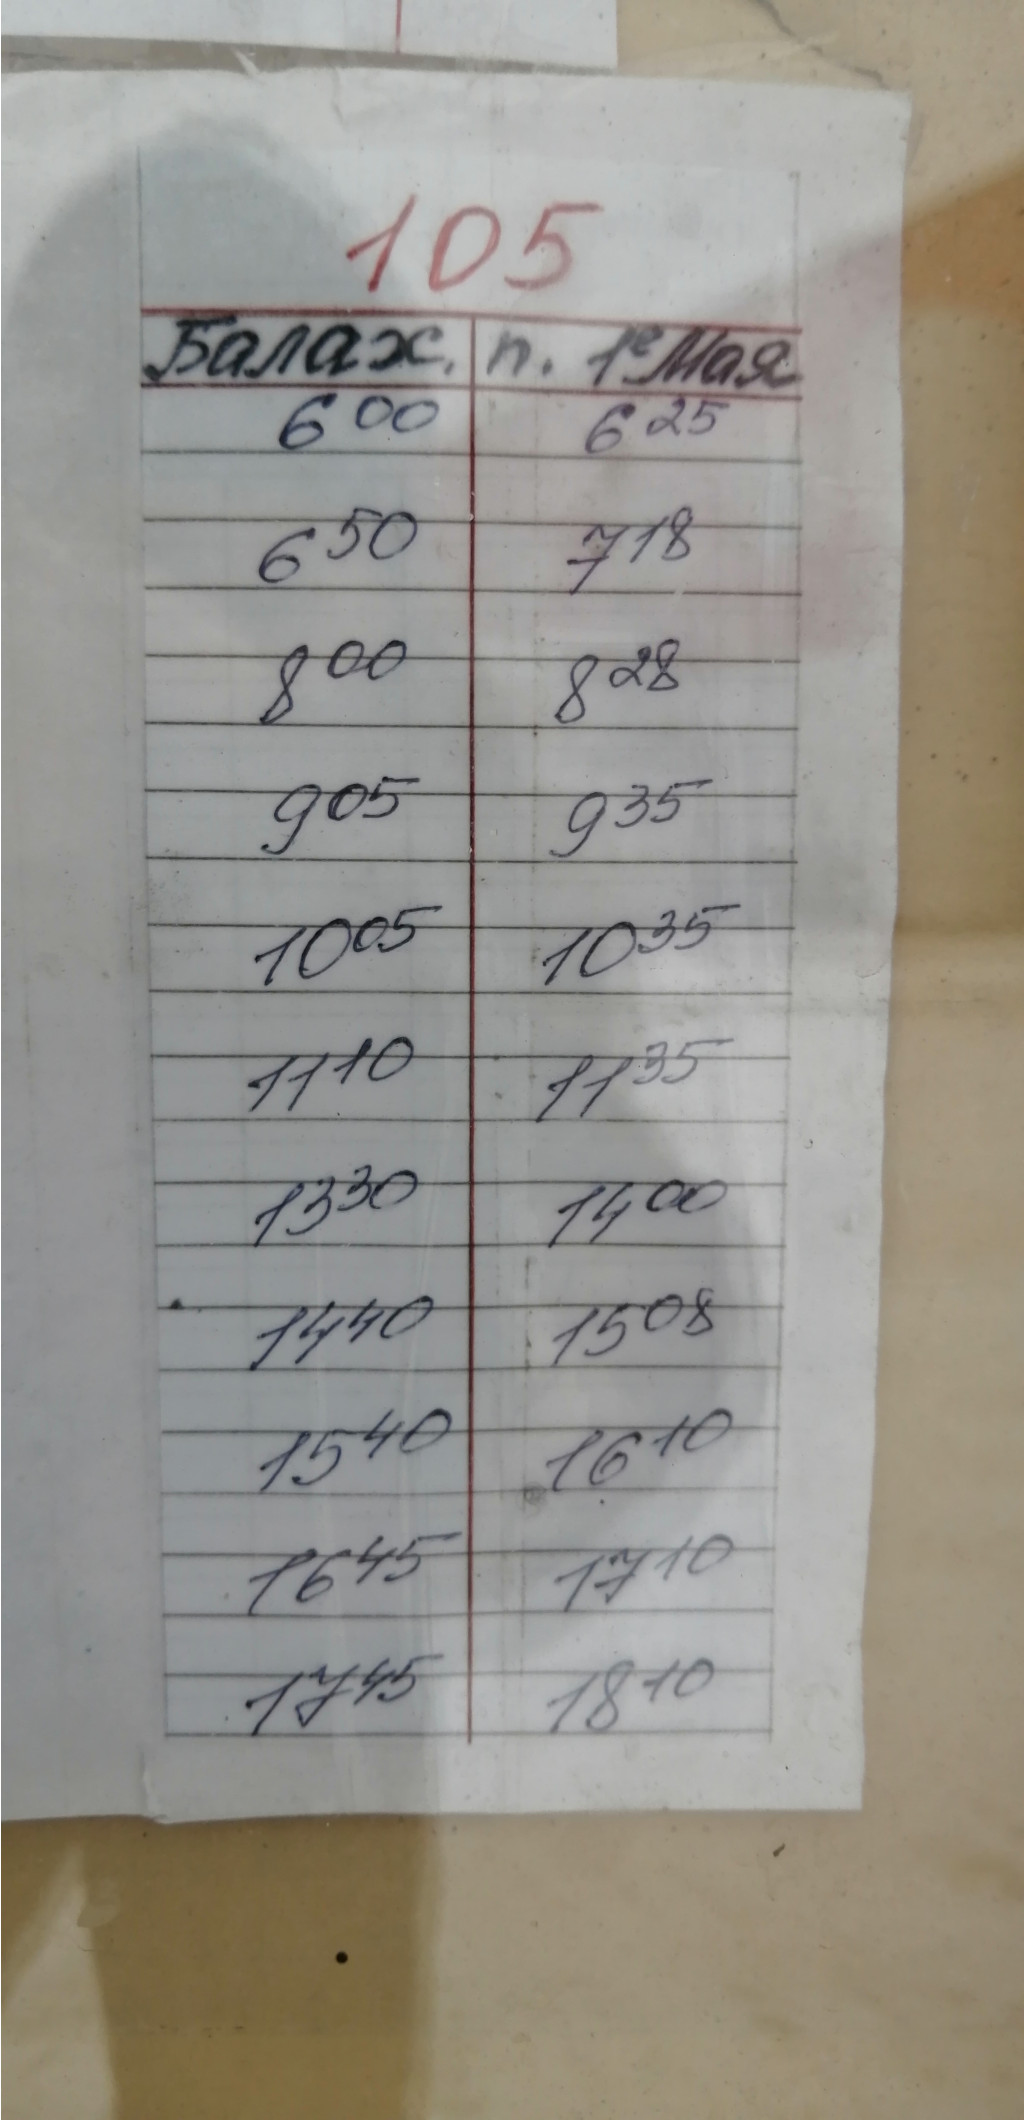 105
Балаж. п. 1е Мая
6 00 6 25
6 50 7 18
8 00 8 28
9 05 9 35
10 05 10 35
11 10 11 35
13 30 14 00
14 40 15 08
15 40 16 10
16 45 17 10
17 45 18 10